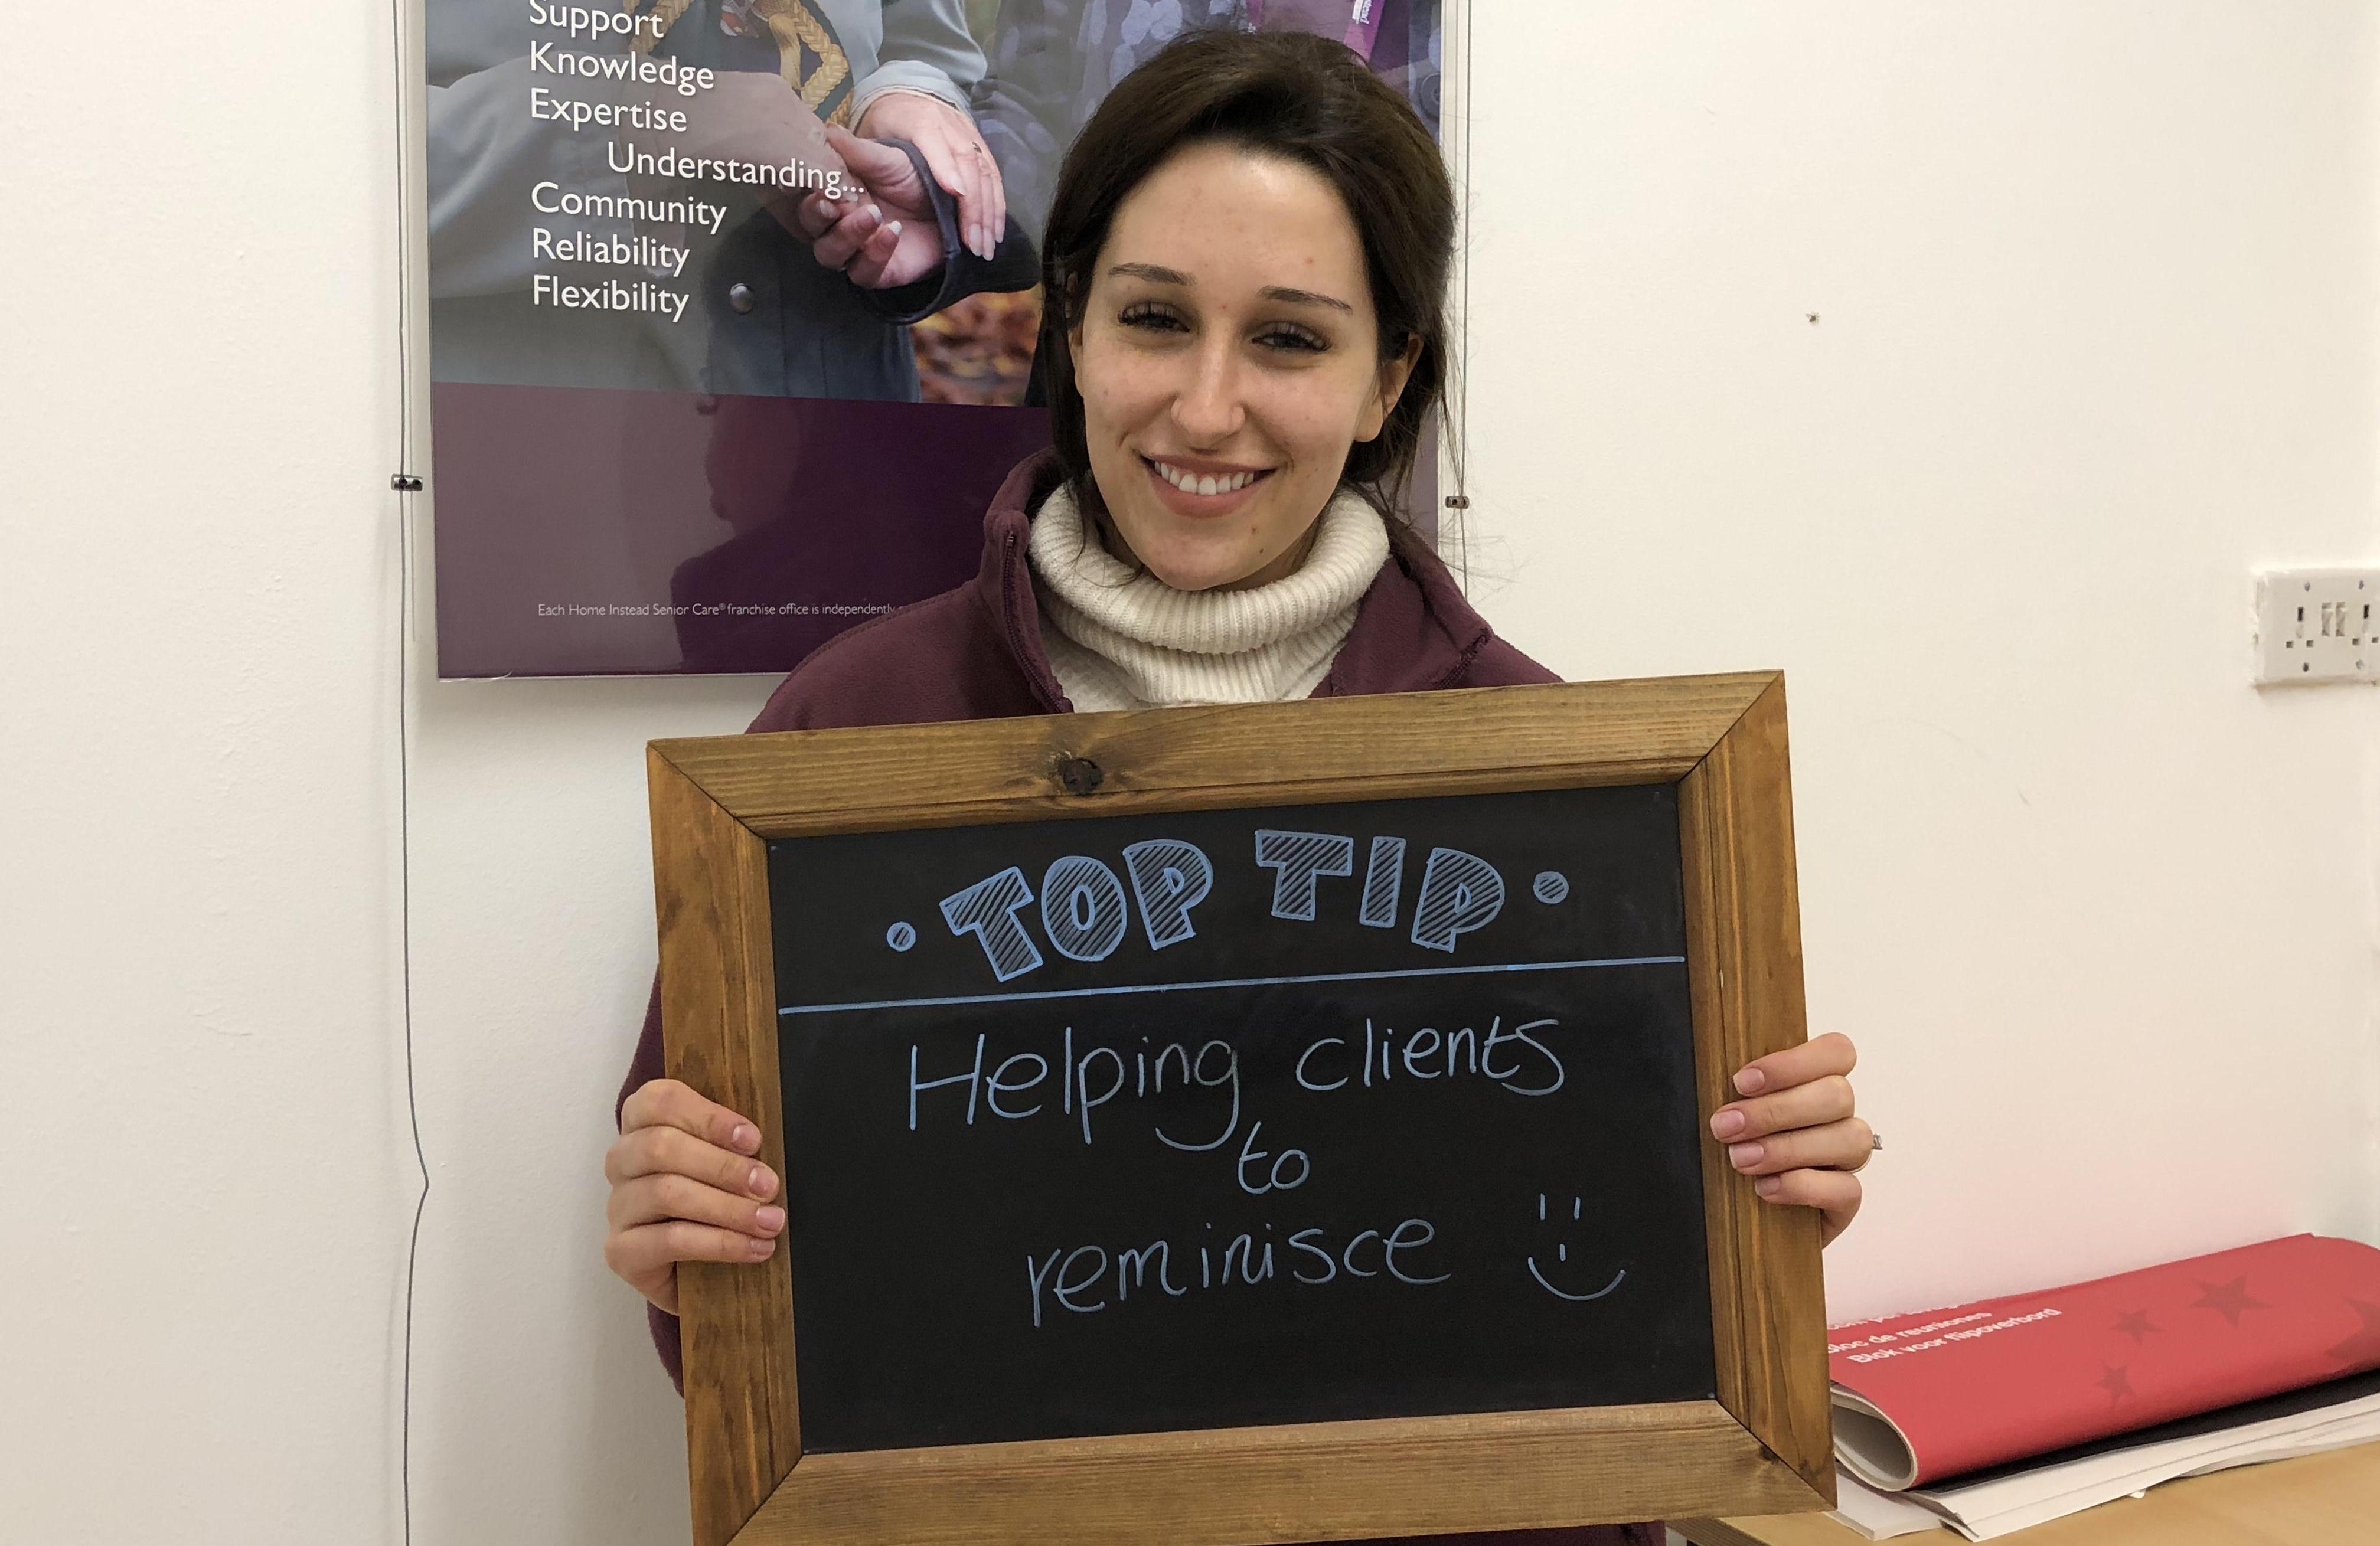 Support
Knowledge
Expertise
Understanding...
Community
Reliability
Flexibility
Each Home Instead Senior Care® franchise office is independently
• TOP TIP •
Helping clients
to
reminisce
Bloc de reuniones
Blok voor flipoverbord